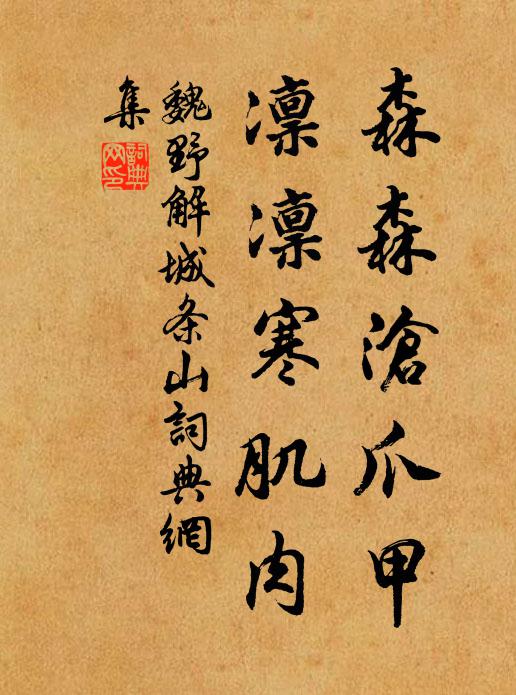 森森滄爪甲
凛凛寒肌肉
魏野解城条山詞典網
集
詞典網印